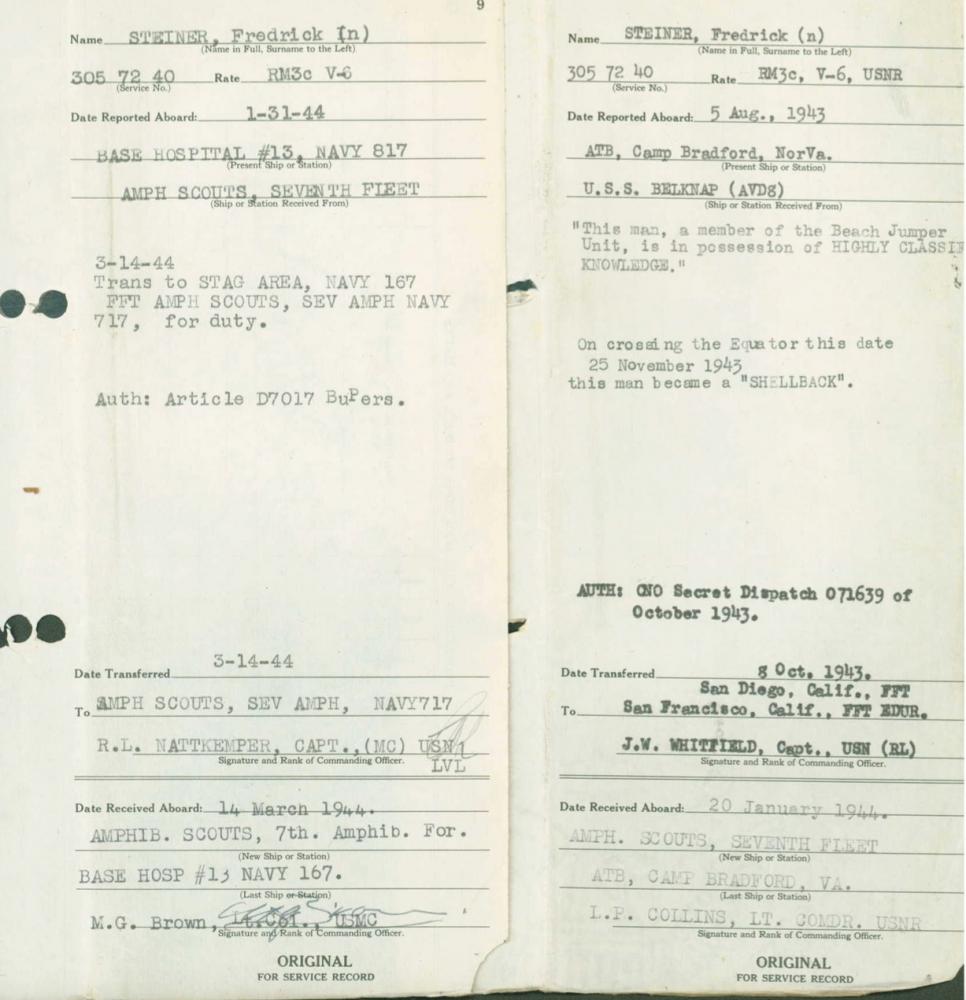 9
Name STEINER, Fredrick (n)
(Name in Full, Surname to the Left)
305 72 40 Rate RM3c V-6
(Service No.)
Date Reported Aboard: 1-31-44
BASE HOSPITAL #13, NAVY 817
(Present Ship or Station)
AMPH SCOUTS, SEVENTH FLEET
(Ship or Station Received From)
3-14-44
Trans to STAG AREA, NAVY 167
FFT AMPH SCOUTS, SEV AMPH NAVY
717, for duty.
Auth: Article D7017 BuPers.
Date Transferred 3-14-44
To AMPH SCOUTS, SEV AMPH, NAVY717
R.L. NATTKEMPER, CAPT.,(MC) USN
Signature and Rank of Commanding Officer.
LVL
Date Received Aboard: 14 March 1944.
AMPHIB. SCOUTS, 7th. Amphib. For.
(New Ship or Station)
BASE HOSP #13 NAVY 167.
(Last Ship or Station)
M.G. Brown, Lt.Col., USMC
Signature and Rank of Commanding Officer.
ORIGINAL
FOR SERVICE RECORD
Name STEINER, Fredrick (n)
(Name in Full, Surname to the Left)
305 72 40 Rate RM3c, V-6, USNR
(Service No.)
Date Reported Aboard: 5 Aug., 1943
ATB, Camp Bradford, NorVa.
(Present Ship or Station)
U.S.S. BELKNAP (AVD8)
(Ship or Station Received From)
"This man, a member of the Beach Jumper
Unit, is in possession of HIGHLY CLASSIF
KNOWLEDGE."
On crossing the Equator this date
25 November 1943
this man became a "SHELLBACK".
AUTH: CNO Secret Dispatch 071639 of
October 1943.
Date Transferred 8 Oct. 1943.
San Diego, Calif., FFT
To San Francisco, Calif., FFT EDUR.
J.W. WHITFIELD, Capt., USN (RL)
Signature and Rank of Commanding Officer.
Date Received Aboard: 20 January 1944.
AMPH. SCOUTS, SEVENTH FLEET
(New Ship or Station)
ATB, CAMP BRADFORD, VA.
(Last Ship or Station)
L.P. COLLINS, LT. COMDR. USNR
Signature and Rank of Commanding Officer.
ORIGINAL
FOR SERVICE RECORD